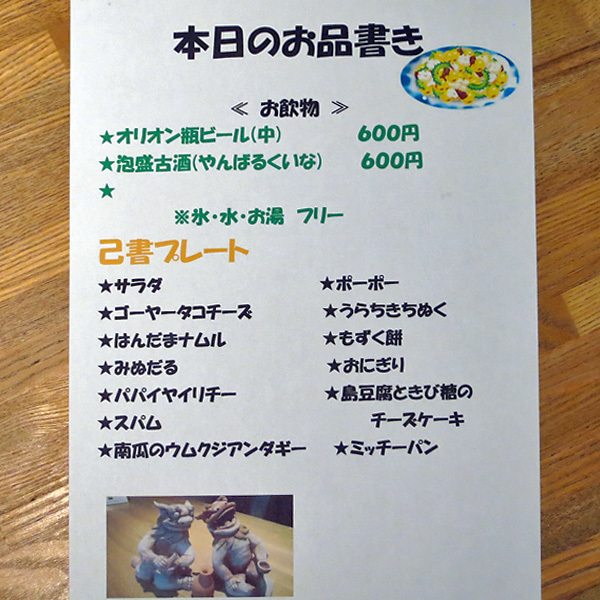 本日のお品書き
≪ お飲物 ≫
★オリオン瓶ビール(中) 600円
★泡盛古酒(やんばるくいな) 600円
★
※氷・水・お湯 フリー
己書プレート
★サラダ ★ポーポー
★ゴーヤータコチーズ ★うらちきちぬく
★はんだまナムル ★もずく餅
★みぬだる ★おにぎり
★パパイヤイリチー ★島豆腐ときび糖の
★スパム チーズケーキ
★南瓜のウムクジアンダギー ★ミッチーパン